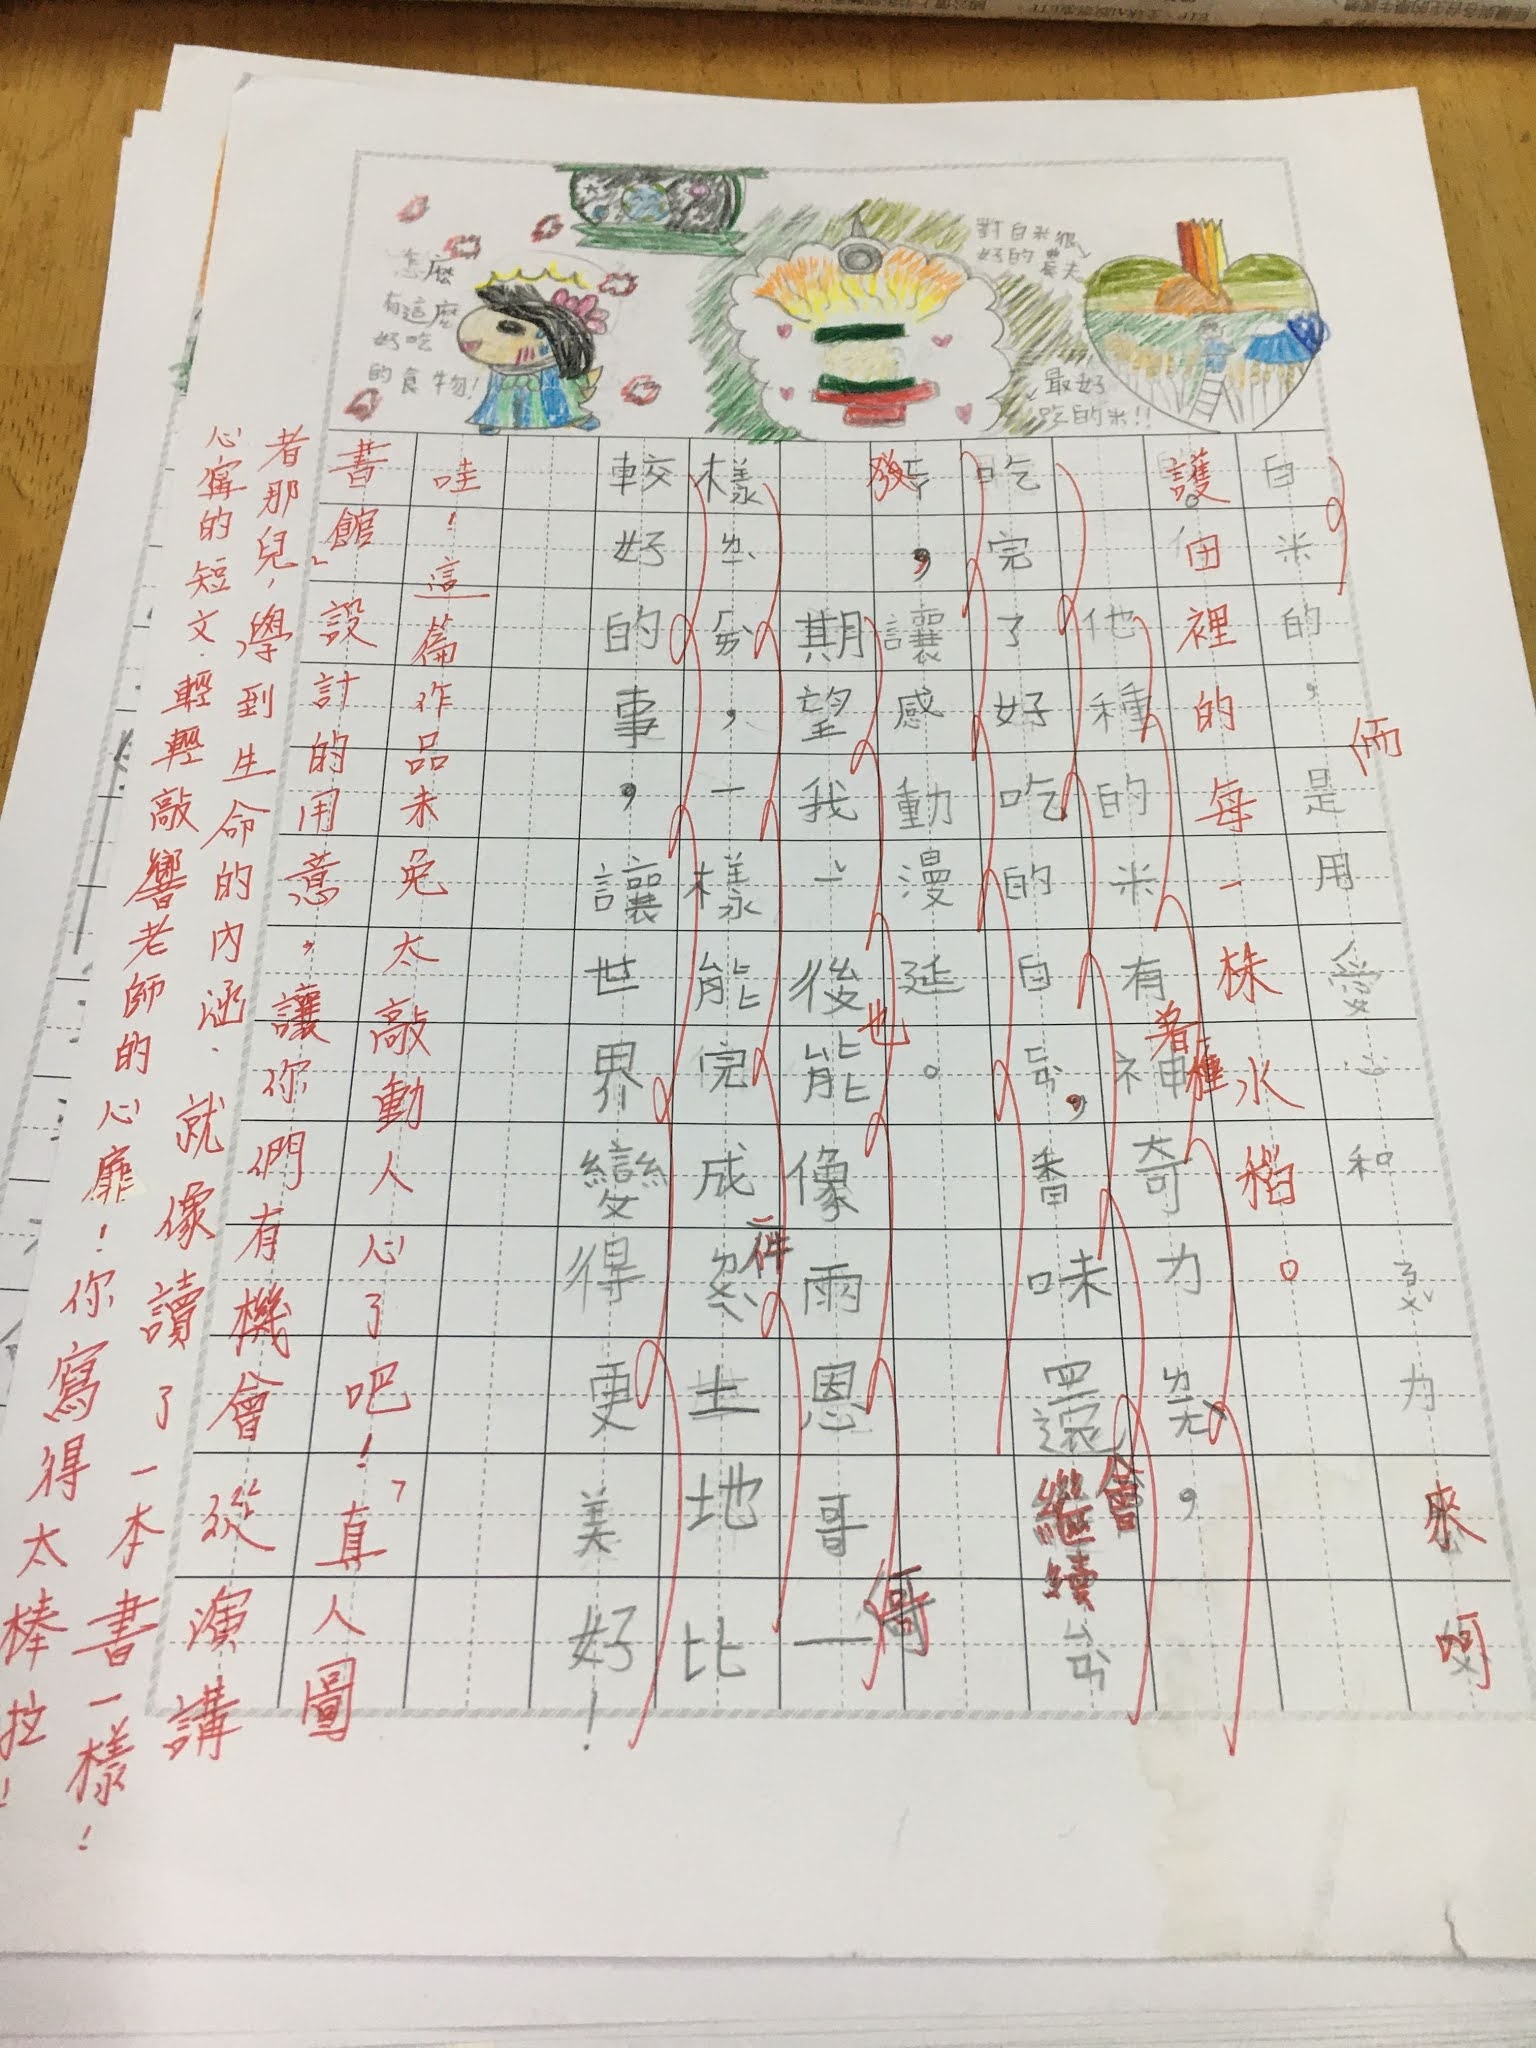 怎麼
有這麼
好吃
的食物!
對白米很
好的農夫
最好
吃的米!!
白米的,是用愛心和ㄋㄞˋ力來呵
護田裡的每一株水稻。
而
他種的米有神奇ㄌ力,
着種
吃完了好吃的白ㄎ,香味還會繼續台
發
,讓感動漫延。
期望我ㄧ後能像雨恩哥一
也
哥
樣,一樣能完成土地比
一件
較好的事,讓世界變得更美好!
哇!這篇作品未免太敲動人心了吧!「真人圖
書館」設計的用意,讓你們有機會從演講
者那兒,學到生命的內涵.就像讀了一本書一樣!
心寧的短文.輕輕敲響老師的心扉!你寫得太棒拉!